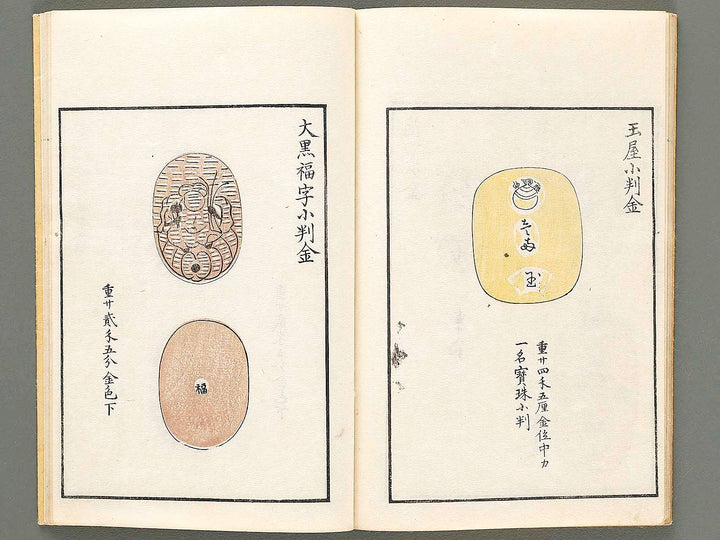 玉屋小判金
壱両
玉
重廿四禾五厘金位中カ
一名寳珠小判
大黒福字小判金
福
重廿貮禾五分金色下